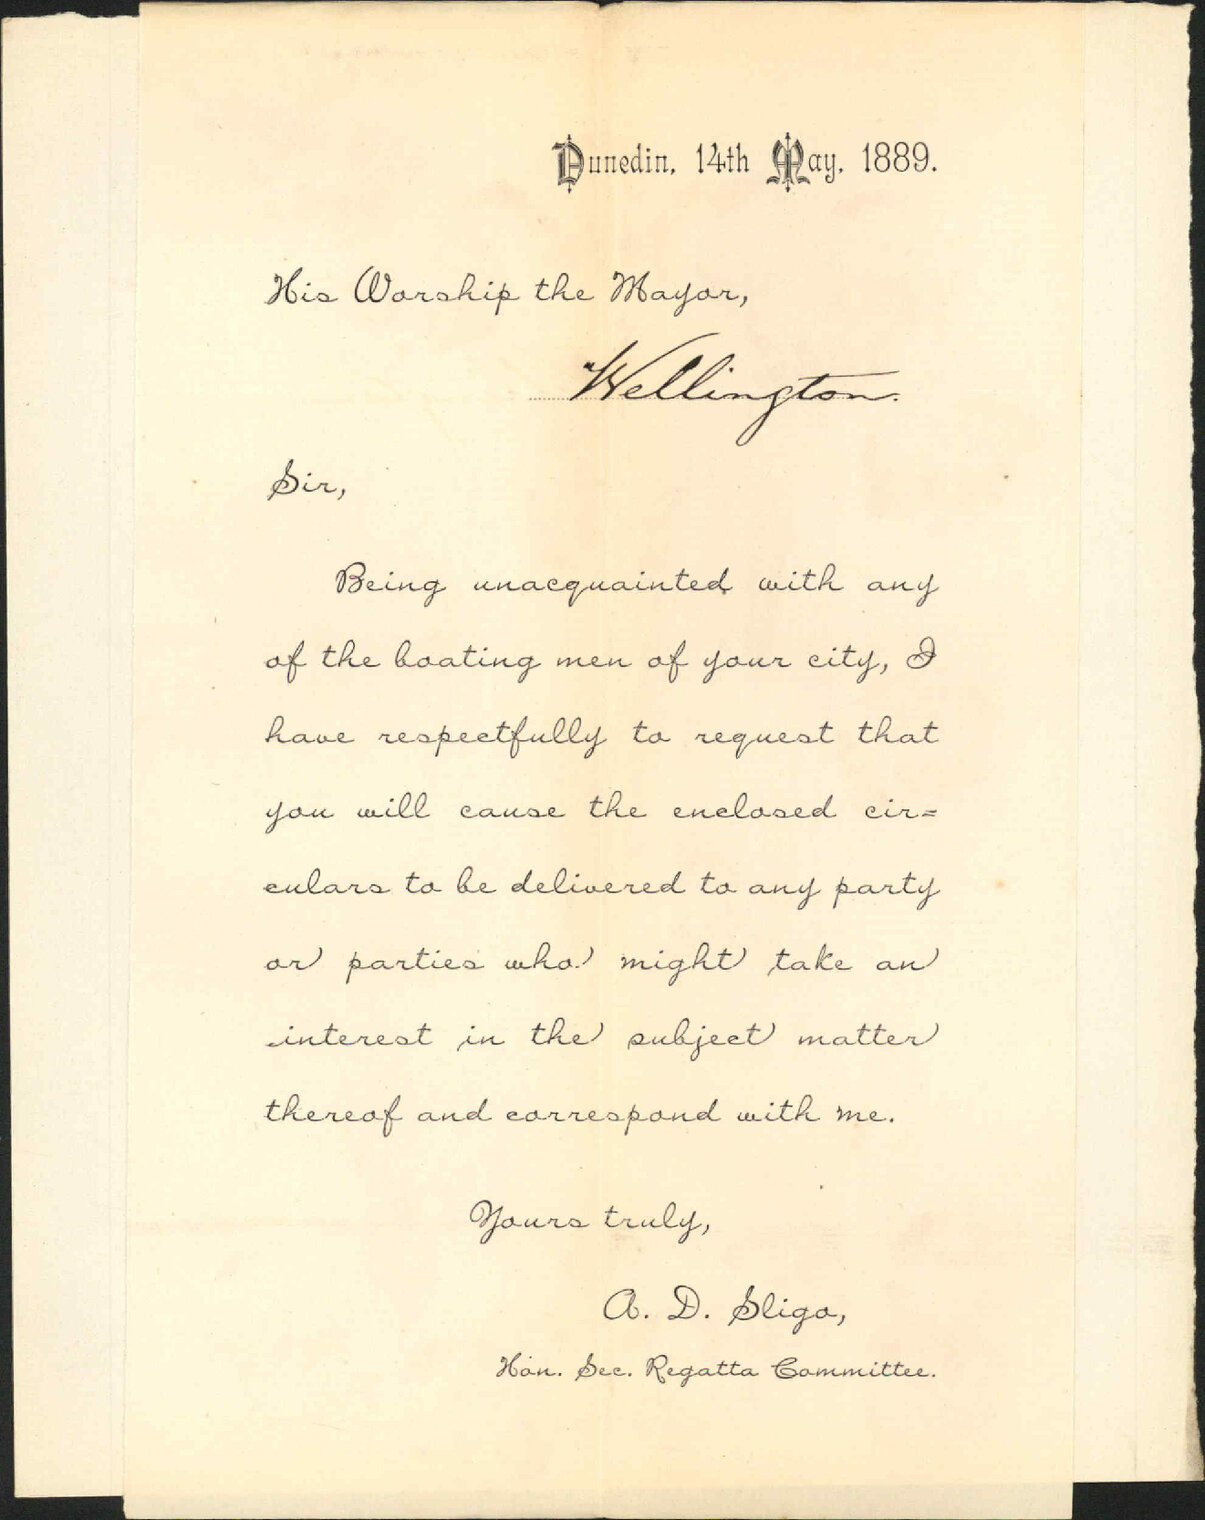 Dunedin, 14th May, 1889.
His Worship the Mayor,
Wellington.
Sir,
Being unacquainted with any
of the boating men of your city, I
have respectfully to request that
you will cause the enclosed cir=
culars to be delivered to any party
or parties who might take an
interest in the subject matter
thereof and correspond with me.
Yours truly,
A. D. Sligo,
Hon. Sec. Regatta Committee.